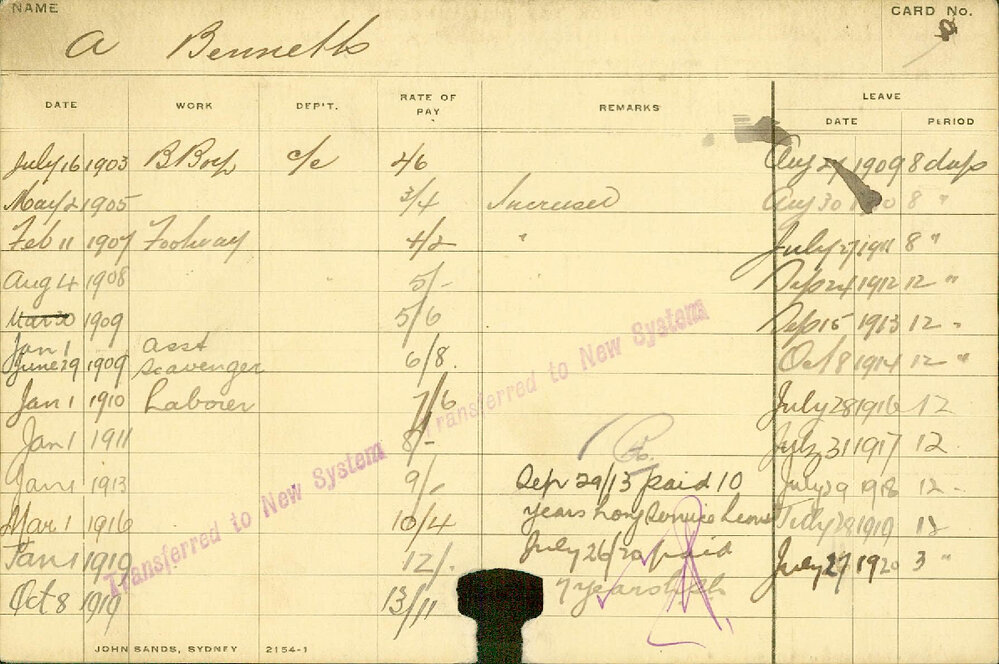 NAME CARD No.
A Bennetts
DATE WORK DEP'T. RATE OF PAY REMARKS LEAVE
DATE PERIOD
July 16 1903 B Boy c/e 2/6 Aug 1909 8 days
May 2 1905 3/4 Increased Aug 30 8 "
Feb 11 1907 Footway 4/2 " July 27 1911 8 "
Aug 4 1908 5/- Sep 24 1912 12 "
Mar 30 1909 5/6 Sep 15 1913 12 "
Jan 1
June 29 1909 asst scavenger 6/8 Oct 8 1914 12 "
Jan 1 1910 Laborer 7/6 July 28 1916 12
Jan 1 1911 8/- July 31 1917 12
Jan 1 1913 9/- Sep 29/13 paid 10 July 29 1918 12
Mar 1 1916 10/4 years Long Service Leave July 1919 12
Jan 1 1919 12/- July 26/20 paid July 27 1920 3 "
Oct 8 1919 13/11 7 years
Transferred to New System
Transferred to New System
JOHN SANDS, SYDNEY 2154-1